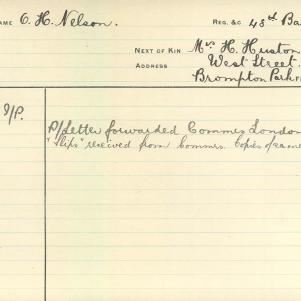 NAME C. H. Nelson. REG. &C 43rd Ba
NEXT OF KIN Mrs H. Huston
ADDRESS West Street.
Brompton Park
P/Letter forwarded Commrs London
"slips" received from Commrs. Copies of same